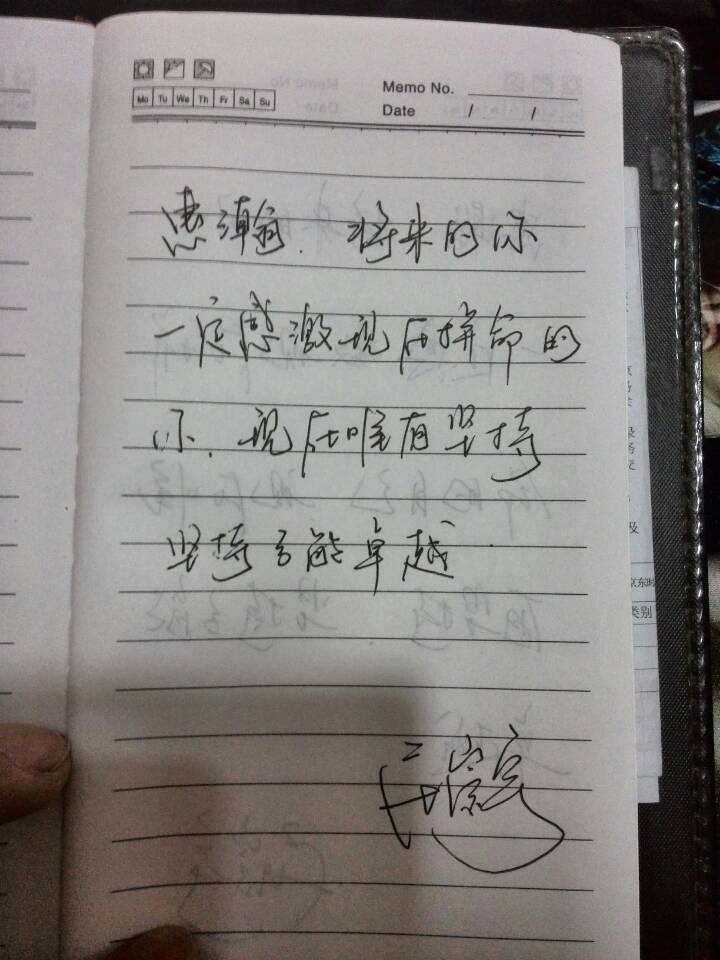 Memo No.
Mo Tu We Th Fr Sa Su
Date / /
惠瀚. 将来的你
一定感激现在拼命的
你. 现在唯有坚持
坚持方能卓越
京东时
类别